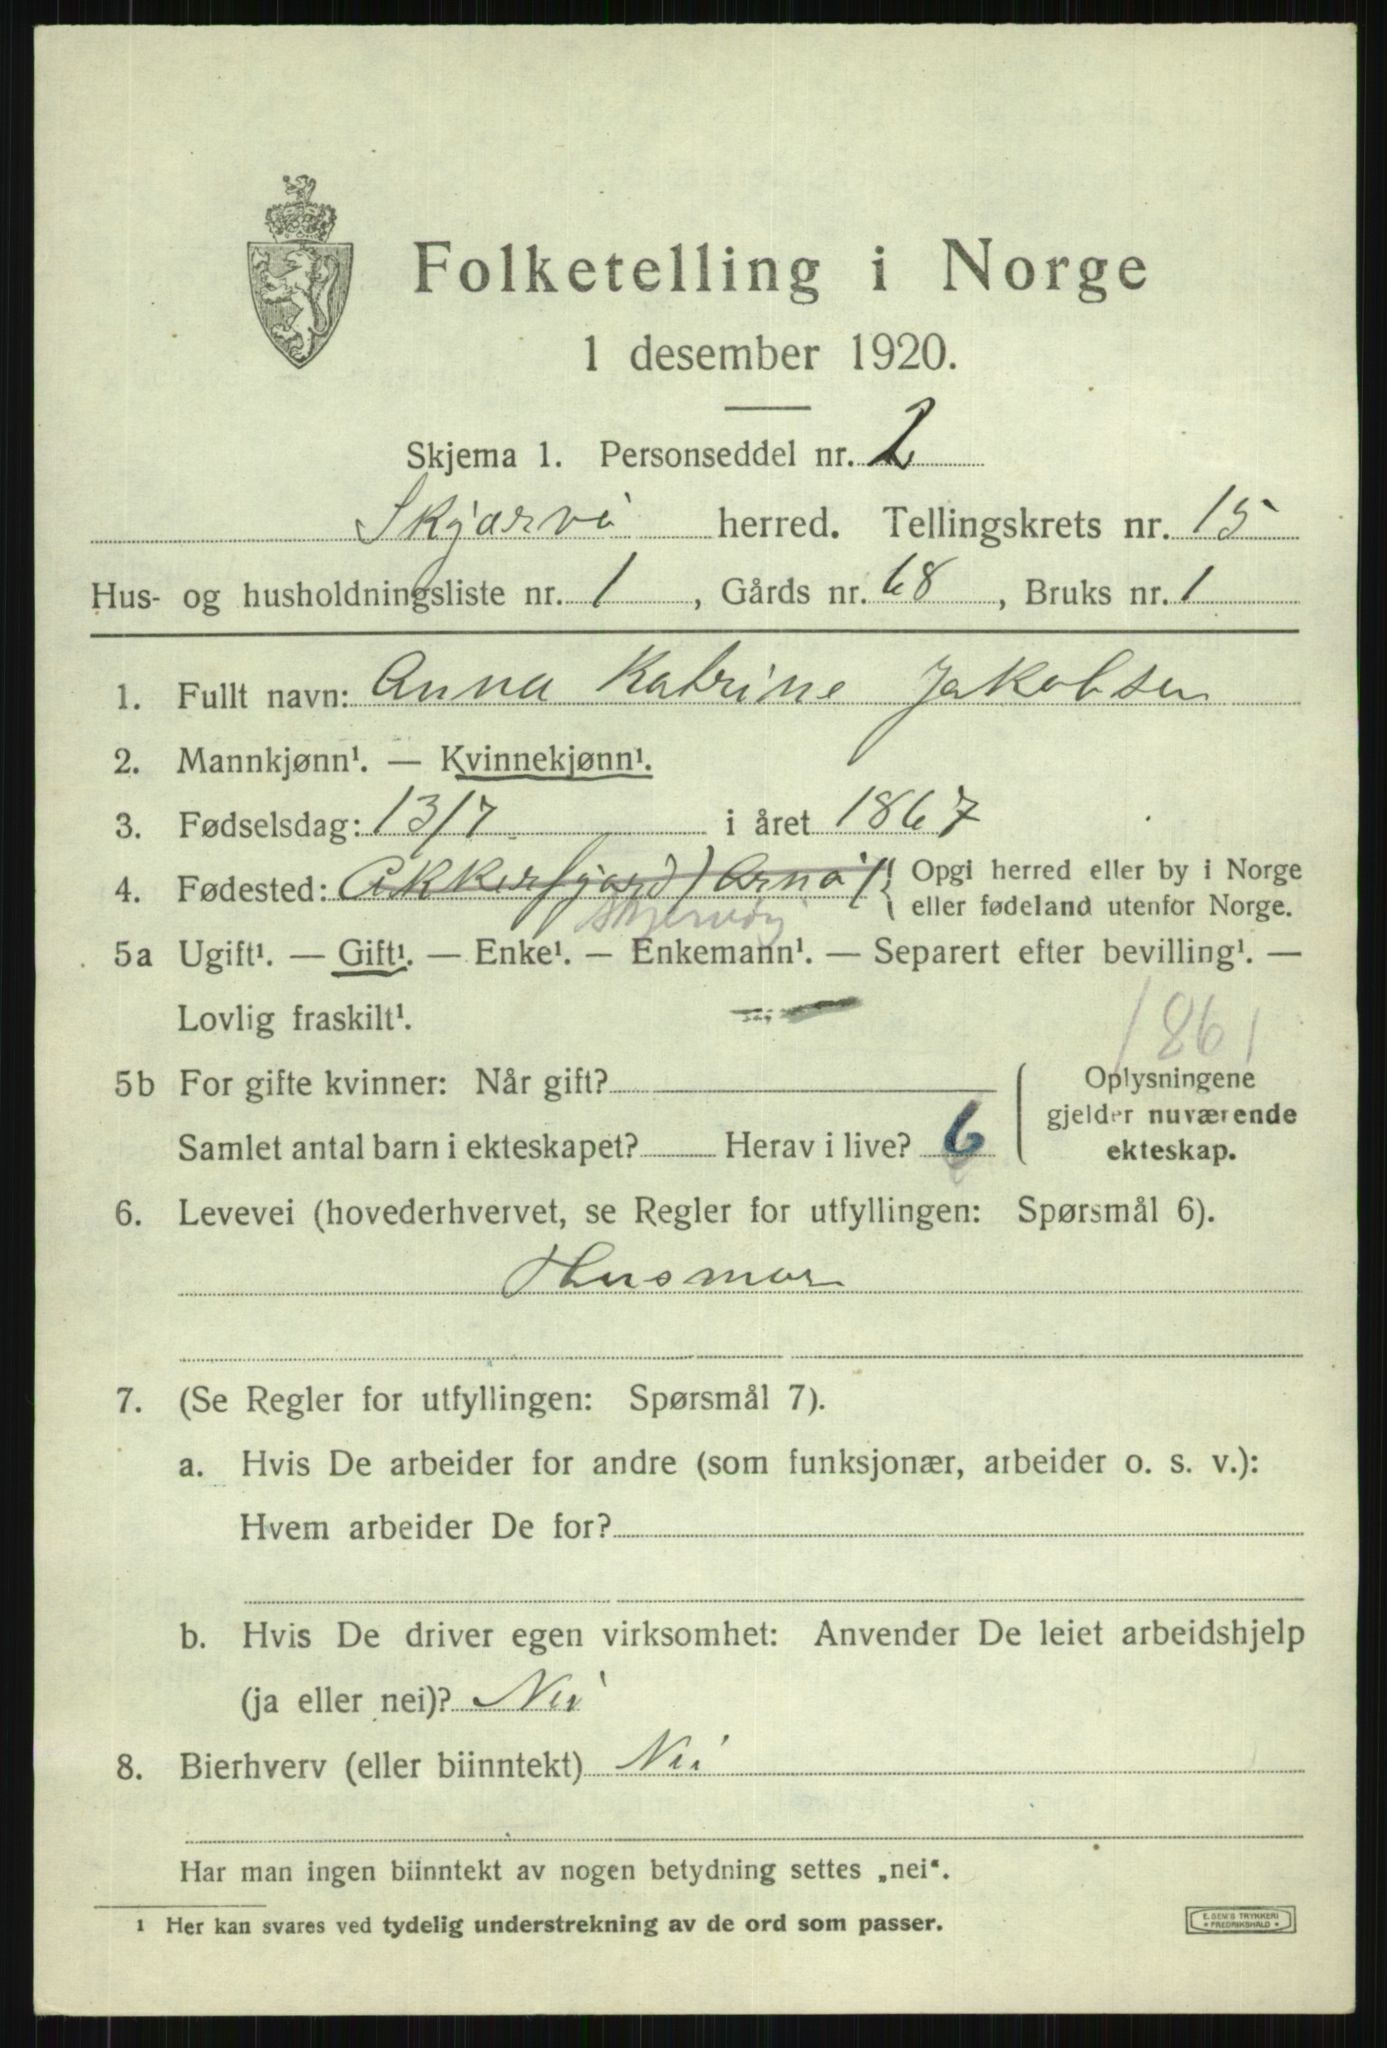 Folketelling i Norge
1 desember 1920.
Skjema 1. Personseddel nr. 2
Skjærvö herred. Tellingskrets nr. 15
Hus- og husholdningsliste nr. 1, Gårds nr. 68, Bruks nr. 1
1. Fullt navn: Anna Katrine Jakobsen
2. Mannkjønn¹. — Kvinnekjønn¹.
3. Fødselsdag: 13/7 i året 1867
4. Fødested: Akkerfjord / Arnö / { Opgi herred eller by i Norge
eller fødeland utenfor Norge.
Skjervöy
5a Ugift¹. — Gift¹. — Enke¹. — Enkemann¹. — Separert efter bevilling¹. —
Lovlig fraskilt¹.
1861
5b For gifte kvinner: Når gift? Oplysningene
gjelder nuværende
Samlet antal barn i ekteskapet? Herav i live? 6 ekteskap.
6. Levevei (hovederhvervet, se Regler for utfyllingen: Spørsmål 6).
Husmor
7. (Se Regler for utfyllingen: Spørsmål 7).
a. Hvis De arbeider for andre (som funksjonær, arbeider o. s. v.):
Hvem arbeider De for?
b. Hvis De driver egen virksomhet: Anvender De leiet arbeidshjelp
(ja eller nei)? Nei
8. Bierhverv (eller biinntekt) Nei
Har man ingen biinntekt av nogen betydning settes „nei“.
1 Her kan svares ved tydelig understrekning av de ord som passer.
E. SEM'S TRYKKERI
* FREDRIKSHALD *